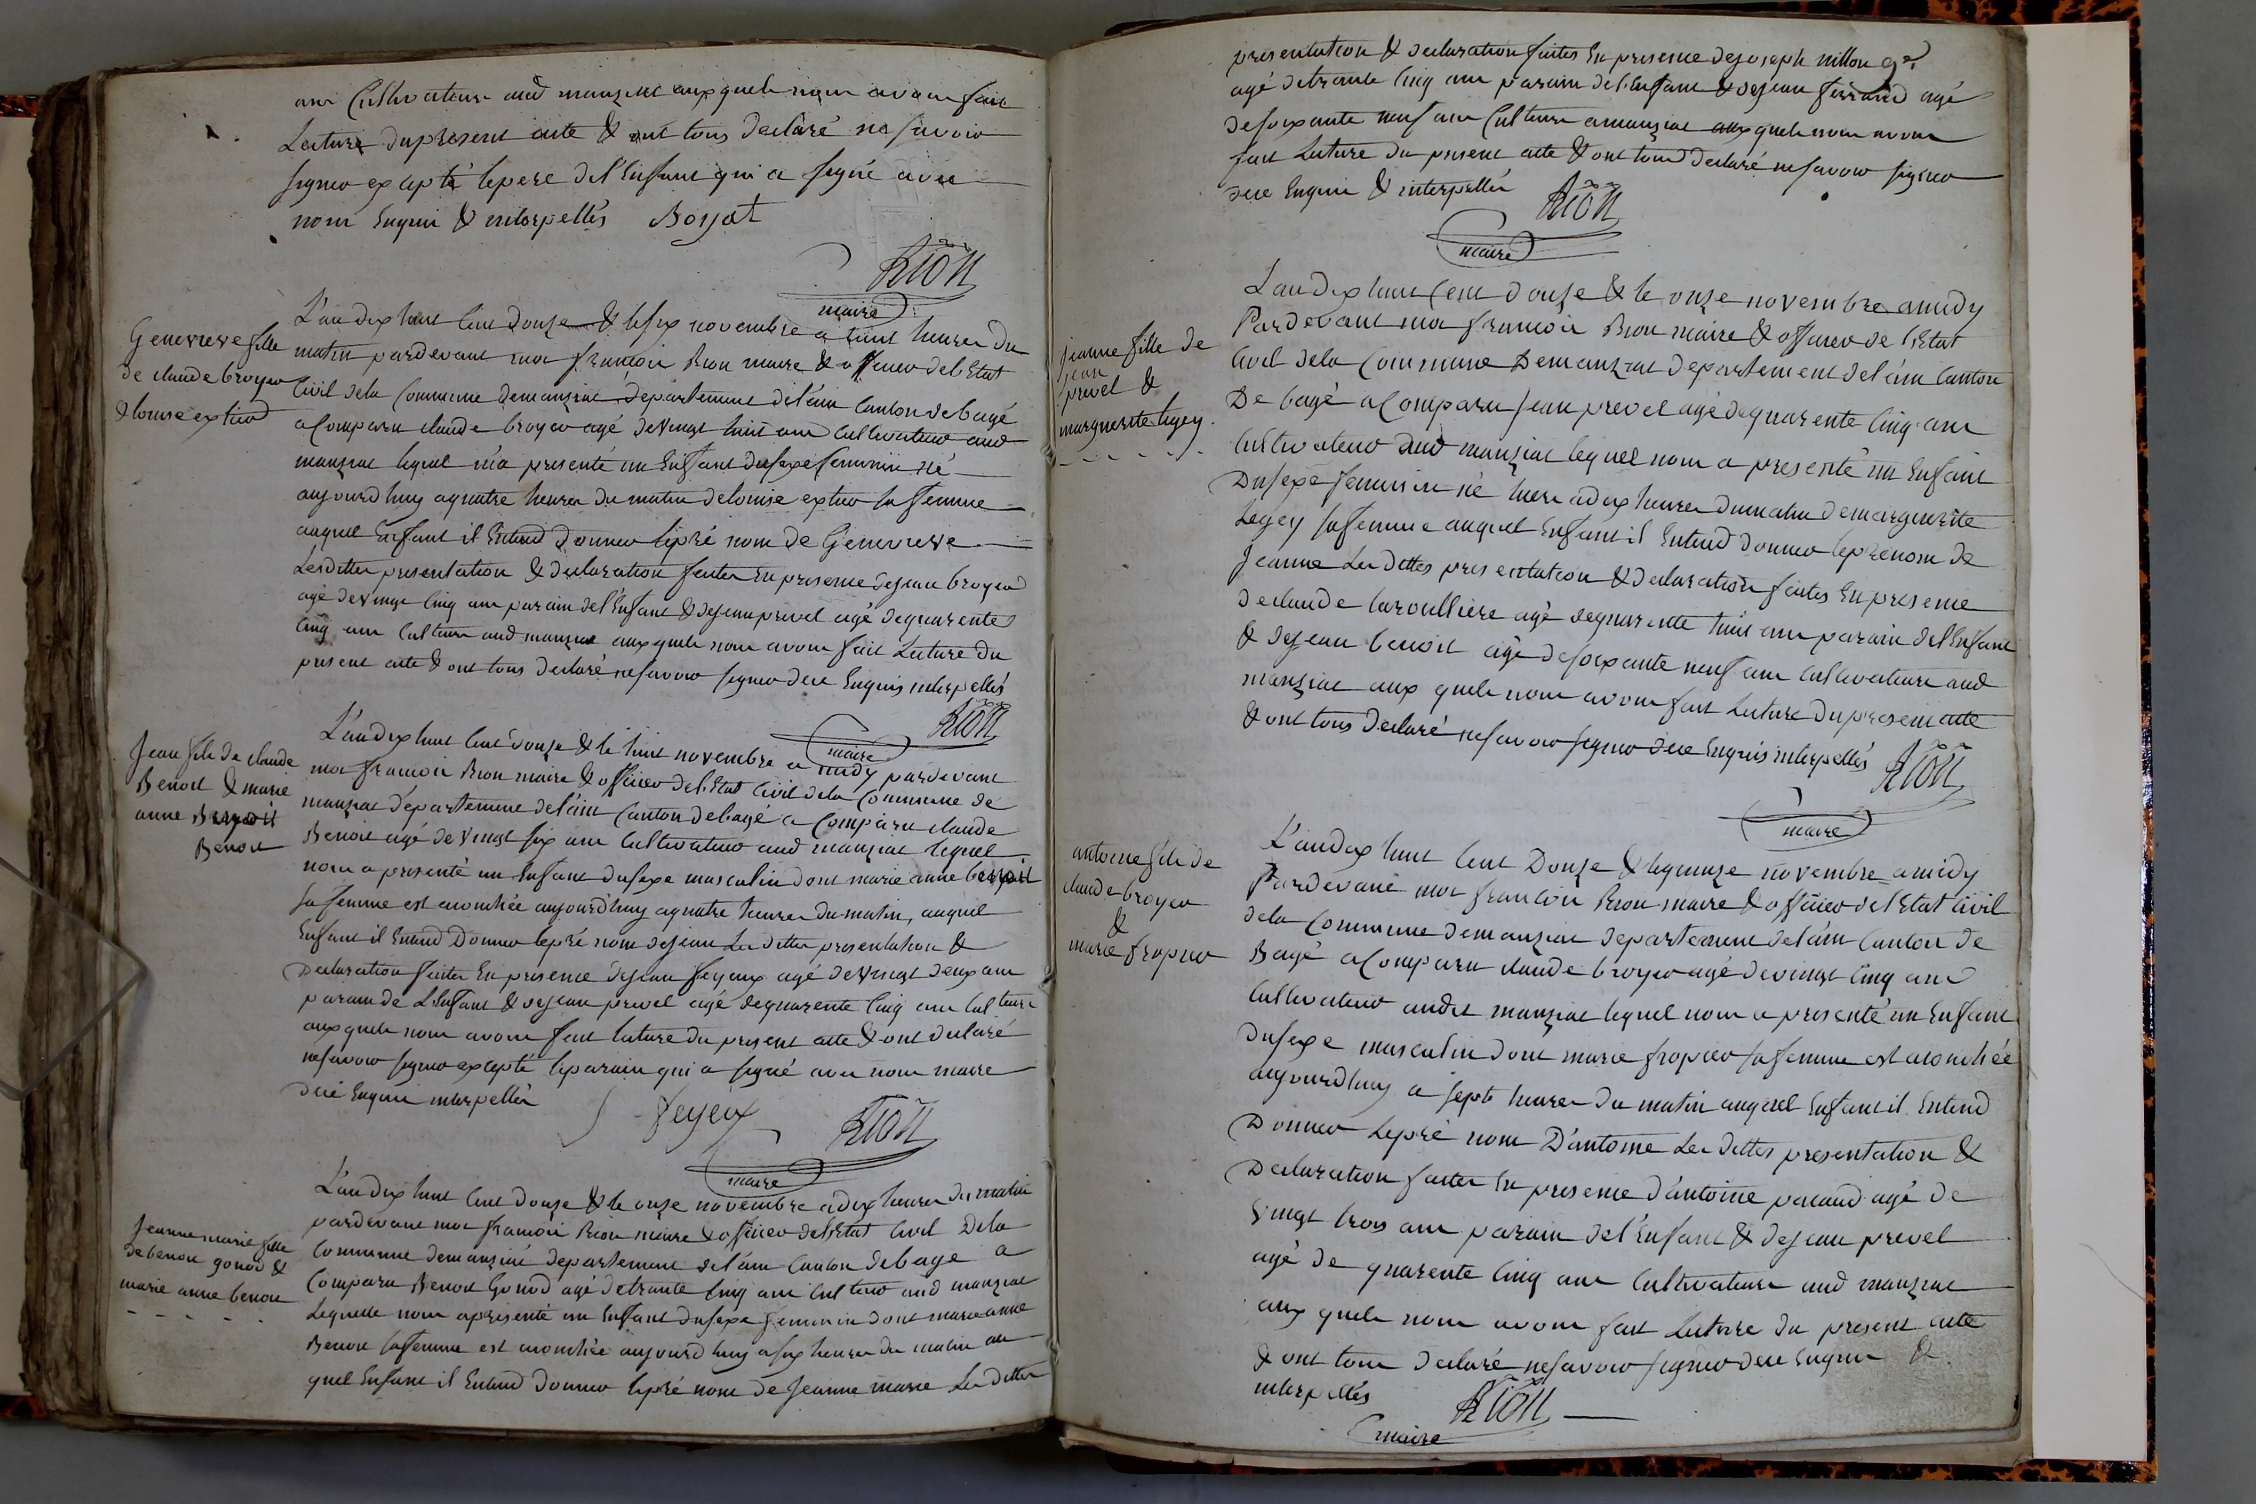 ans Cultivateurs aud manziat aux quels nous avons fait
Lecture du present acte & ont tous declaré ne savoir
signer excepté le pere de l'Enfant qui a signé avec
nous Enquis & interpellés Boyat
Rion
maire
Genevieve fille
de claude broyer
& louise extier
L'an dix huit cent douze & le six novembre a huit heures du
matin pardevant moi francois Rion maire & officier de l'Etat
Civil dela Commune demanziat departement del'ain Canton de bagé
a Comparu claude broyer agé de Vingt huit ans Cultivateur aud
manziat lequel m'a presenté un Enfant du sexe feminin né
aujourdhuy a quatre heures du matin de louise extier sa femme
auquel Enfant il Entend donner le pré nom de Genevieve
Les dittes presentation & declaration faites En presence de jean broyer
agé de Vingt Cinq ans parain del'Enfant & de jean prevel agé de quarente
Cinq ans Culteurs aud manziat aux quels nous avons fait Lecture du
present acte & ont tous declaré ne savoir signer de ce Enquis interpellés
Rion
maire
Jean fils de claude
Benoit & marie
anne
Benoit
L'an dix huit Cent douze & le huit novembre a midy pardevant
moi francois Rion maire & officier del'Etat Civil dela Commune de
manziat departement del'ain Canton debagé a Comparu claude
Benoit agé de Vingt six ans Cultivateur aud manziat lequel
nous a presenté un Enfant du sexe masculin dont marie anne benoit
sa femme est acouchée aujourd'huy a quatre heures du matin, auquel
Enfant il Entend Donner le pré nom de jean Les dittes presentation &
Declaration faites En presence de jean feyeux agé de Vingt deux ans
parain de L'Enfant & de jean prevel agé de quarente Cinq ans Culteurs
aux quels nous avons fait lecture du present acte & ont declaré
ne savoir signer excepté le parain qui a signé avec nous maire
de ce Enquis interpellés
J feyeux
Rion
maire
Jeanne marie fille
de benoit gonod &
marie anne benoit
L'an dix huit Cent douze & le onze novembre a dix heures du matin
pardevant moi francois Rion maire & officier del'Etat Civil Dela
Commune demanziat departement del'ain Canton debagé a
Comparu Benoit Gonod agé detrante Cinq ans Culteur aud manziat
Lequelle nous apresenté un Enfant du sexe feminin dont marie anne
Benoit sa femme est acouchée aujourd huy a six heures du matin au
quel Enfant il Entend Donner le pré nom de Jeanne marie Les dittes
presentation & declaration faites En presence de joseph nillon
agé detrante Cinq ans parain del'Enfant & de jean ferrand agé
de soixante neuf ans Culteurs amanziat aux quels nous avons
fait Lecture du present acte & ont tous declaré ne savoir signer
de ce Enquis & interpellés
Rion
maire
jeanne fille de
jean
prevel &
marguerite legey
L'an dix huit Cent douze & le onze novembre amidy
Pardevant moi francois Rion maire & officier de l'Etat
Civil dela Commune Demanziat departement del'ain Canton
De bagé a Comparu jean prevel agé de quarente Cinq ans
Cultivateur aud manziat lequel nous a presenté un Enfant
Du sexe feminin né hier a dix heures du matin de marguerite
Legey sa femme auquel Enfant il Entend donner le prenom de
Jeanne Les dittes presentation & declaration faites En presence
de claude laroulliere agé de quarente huit ans parain del'Enfant
& de jean benoit agé de soixante neuf ans Cultivateurs aud
manziat aux quels nous avons fait Lecture du present acte
& ont tous declaré ne savoir signer de ce Enquis interpellés
Rion
maire
antoine fils de
claude broyer
&
marie fropier
L'an dix huit Cent Douze & le quinze novembre amidy
Pardevant moi francois Rion maire & officier del'Etat Civil
dela Commune demanziat departement del'ain Canton de
Bagé a Comparu claude broyer agé de vingt Cinq ans
Cultivateur audit manziat lequel nous a presenté un Enfant
du sexe masculin dont marie fropier sa femme est acouchée
aujourdhuy a sept heures du matin auquel Enfant il Entend
Donner Lepré nom D'antoine Les dittes presentation &
Declaration faites En presence d'antoine pacaud agé de
Vingt trois ans parain del'Enfant & de jean prevel
agé de quarente Cinq ans Cultivateurs aud manziat
aux quels nous avons fait Lecture du present acte
& ont tous declaré ne savoir signer de ce Enquis &
interpellés
Rion
maire